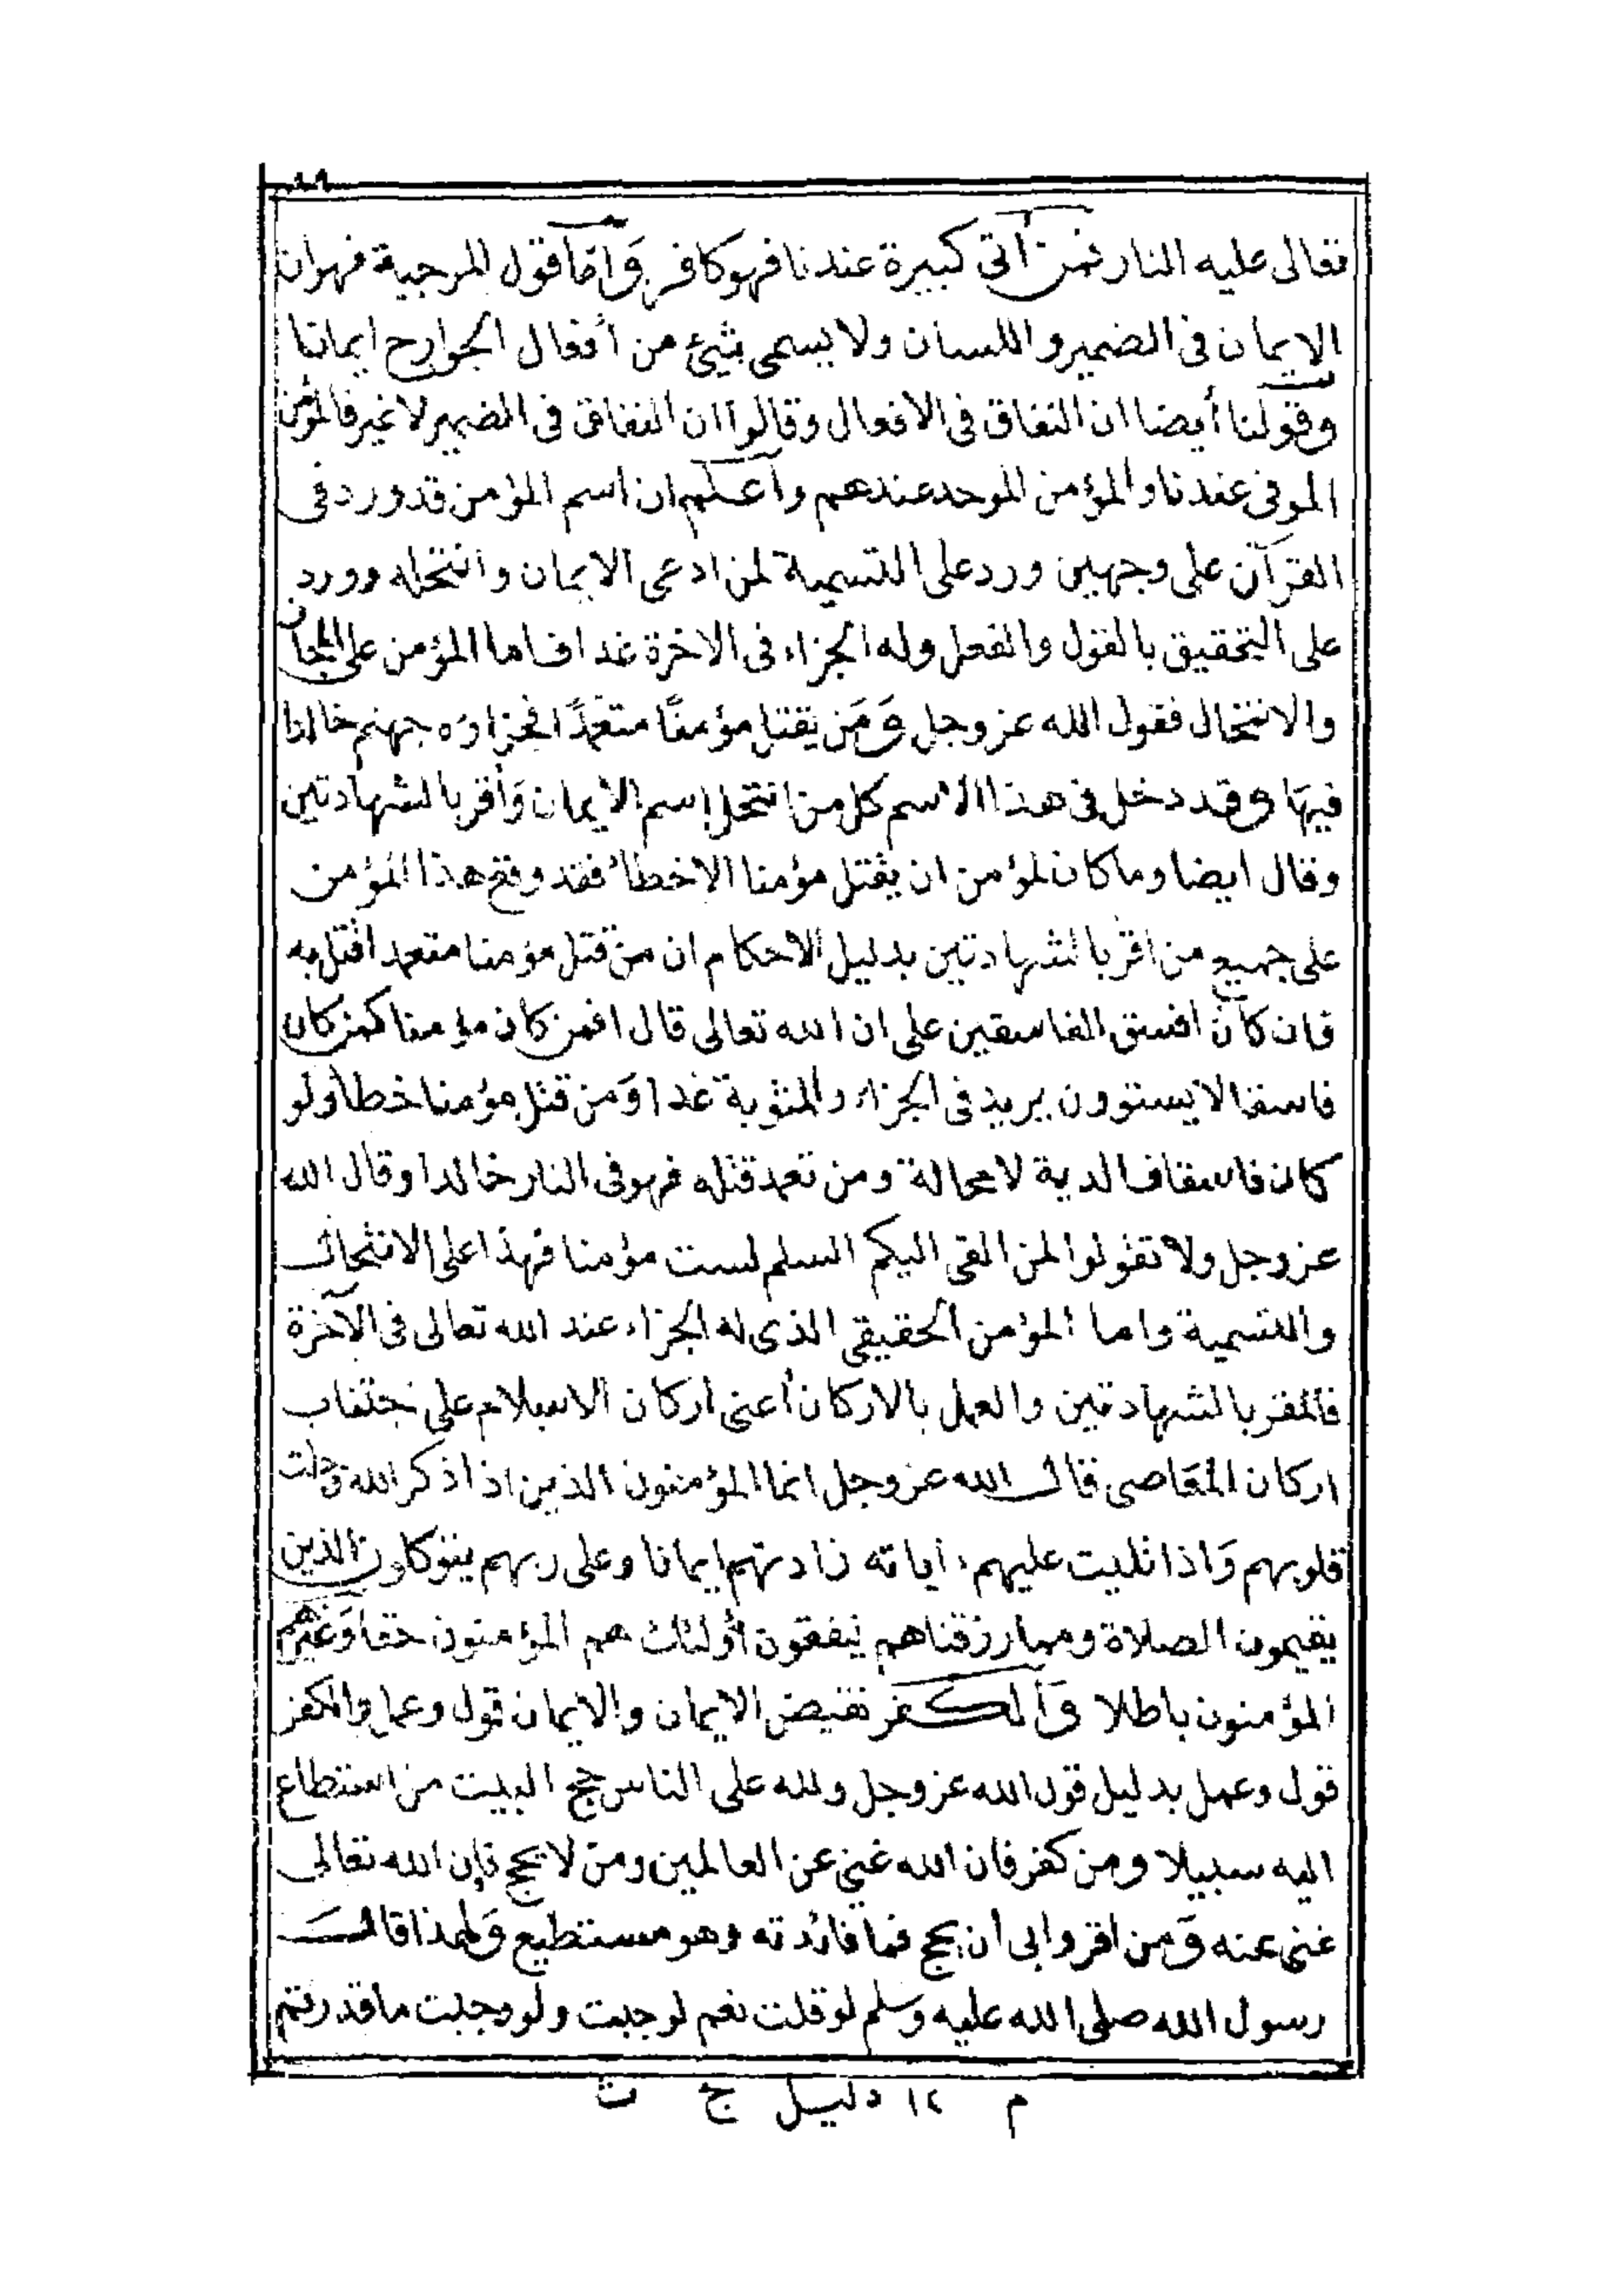 تعالى عليه النار فمن أتى كبيرة عندنا فهو كافر وأما قول المرجية فهو ان
الايمان فى الضمير واللسان ولا يسمى بشيئ من أفعال الجوارح ايمانا
وقولنا أيضا ان النفاق فى الافعال وقالوا ان النفاق فى الضمير لا غير فالمؤمن
الموفى عندنا والمؤمن الموحد عندهم وأعلم ان اسم المؤمن قد ورد فى
القرآن على وجهين ورد على التسمية لمن ادعى الايمان وانتحله وورد
على التحقيق بالقول والفعل وله الجزاء فى الاخرة غدا فاما المؤمن على المجاز
والانتحال فقول الله عز وجل وَمَن يقتل مؤمنًا متعمدًا فجزاؤه جهنم خالدا
فيهَا وقد دخل فى هذا الاسم كل من انتحل إسم الايمان وَأقر بالشهادتين
وقال ايضا وما كان لمؤمن ان يقتل مؤمنا الاخطأ فقد وقع هذا المؤمن
على جميع من اقر بالشهادتين بدليل الاحكام ان من قتل مؤمنا متعمدا قتل به
فان كان افسق الفاسقين على ان الله تعالى قال افمن كان مؤمنا كمن كان
فاسقا لا يستوون يريد فى الجزاء والمثوبة غدا وَمن قتل مؤمنا خطأ ولو
كان فاسقا فالدية لا محالة ومن تعمد قتله فهو فى النار خالدا وقال الله
عز وجل ولا تقولوا لمن القى اليكم السلم لست مؤمنا فهذا على الانتحال
والتسمية واما المؤمن الحقيقى الذى له الجزاء عند الله تعالى فى الآخرة
فالمقر بالشهادتين والعمل بالاركان أعنى اركان الاسلام على اجتناب
اركان المعَاصى قال الله عز وجل انما المؤمنون الذين اذا ذكر الله وجلت
قلوبهم وَاذا تليت عليهم اياته زادتهم ايمانا وعلى ربهم يتوكلون الذين
يقيمون الصلاة ومما رزقناهم ينفقون أولئك هم المؤمنون حقا وَغيرهم
المؤمنون باطلا وَالكفر نقيض الايمان والايمان قول وعمل والكفر
قول وعمل بدليل قول الله عز وجل ولله على الناس حج البيت من استطاع
اليه سبيلا ومن كفر فان الله غنى عن العالمين ومن لا يحج فإن الله تعالى
غنى عنه وَمن اقر وابى أن يحج فما فائدته وهو مستطيع وَلهذا قال
رسول الله صلى الله عليه وسلم لو قلت نعم لوجبت ولو وجبت ما قدرتم
م ١٢ دليل ج ث